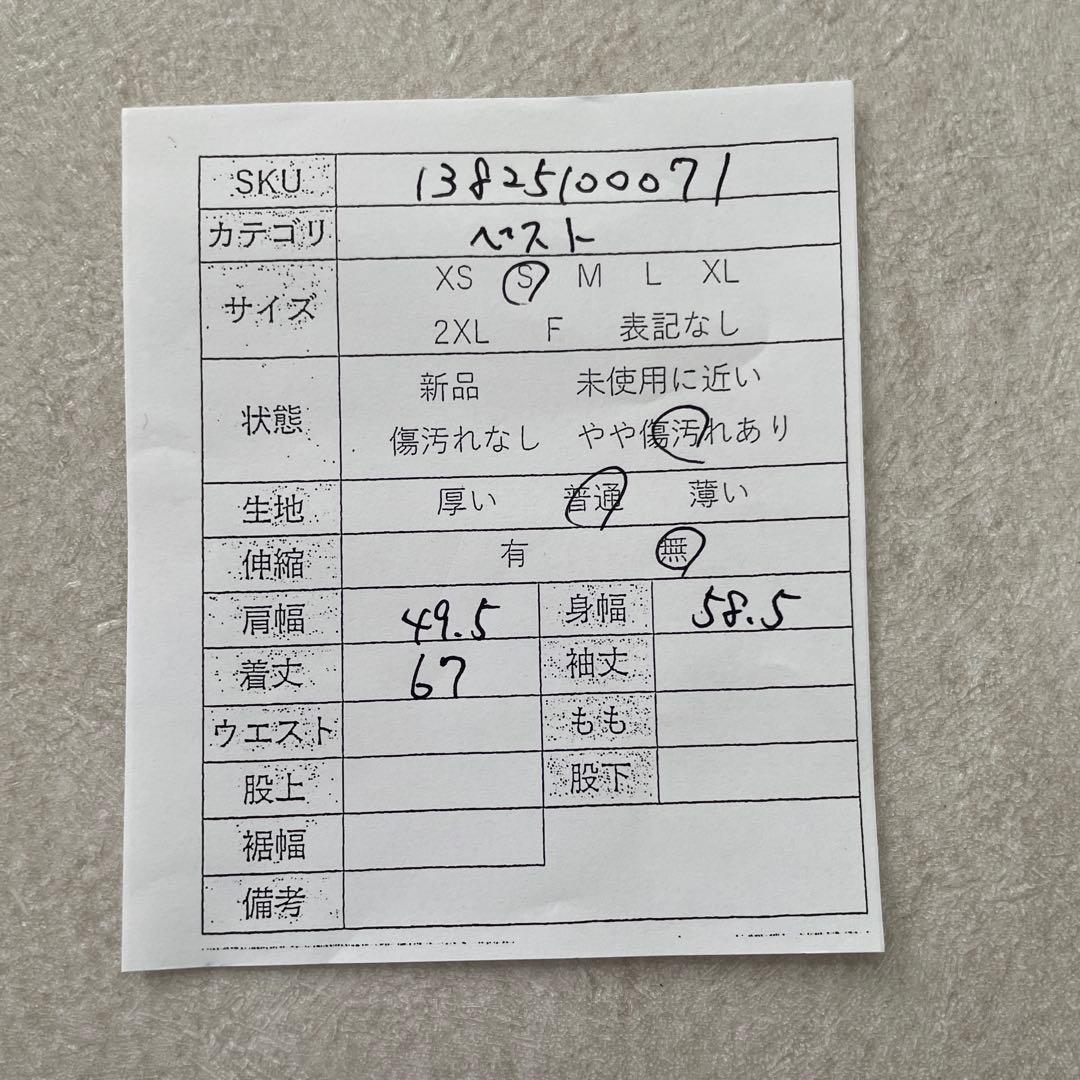 SKU 13825100071
カテゴリ ベスト
サイズ XS S M L XL
2XL F 表記なし
状態 新品 未使用に近い
傷汚れなし やや傷汚れあり
生地 厚い 普通 薄い
伸縮 有 無
肩幅 49.5 身幅 58.5
着丈 67 袖丈
ウエスト もも
股上 股下
裾幅
備考